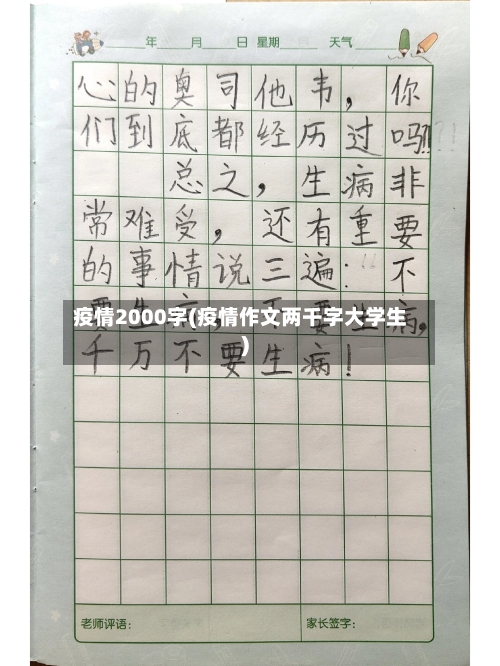 年 月 日 星期 天气
心的奥司他韦，你
们到底都经历过吗!!?!
总之，生病非
常难受，还有重要
的事情说三遍：“不
要生病，不要生病，
疫情2000字(疫情作文两千字大学生
)
千万不要生病！
老师评语： 家长签字：